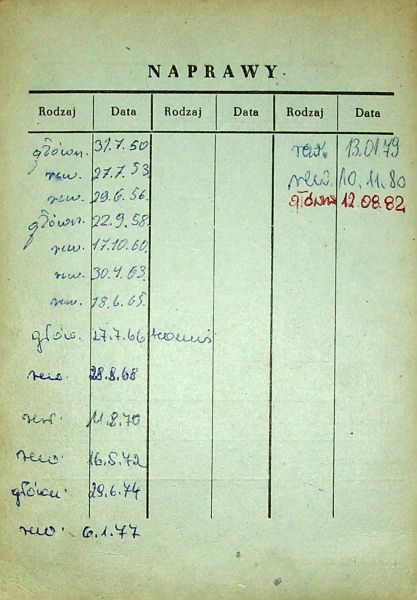 NAPRAWY
Rodzaj Data Rodzaj Data Rodzaj Data
główn. 31.7.50
rew. 27.7.53
rew. 29.6.56
główn. 22.9.58
rew. 17.10.60
rew. 30.4.63
rew. 18.6.65
głów. 27.7.66
rew. 28.8.68
rew. 11.8.70
rew. 16.5.72
główn. 29.6.74
rew. 6.1.77
rew. 13.01.79
rew. 10.11.80
główna 12.08.82